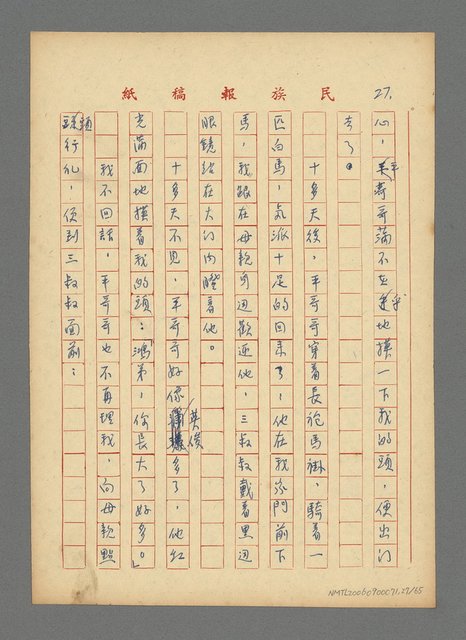 民族報稿紙
27.
心,平哥哥滿不在乎地摸一下我的頭,便出門
去了。
十多天後,平哥哥穿着長袍馬褂,騎着一
匹白馬,氣派十足的回來了,他在我家門前下
馬,我跟在母親身邊歡迎他,三叔叔戴着黑邊
眼鏡站在大門內瞪着他。
十多天不見,平哥哥好像英俊多了,他紅
光滿面地摸着我的頭:「鴻弟,你長大了好多。」
我不回話,平哥哥也不再理我,向母親點
頭行禮,便到三叔叔面前:
NMTL20060900071.27/65